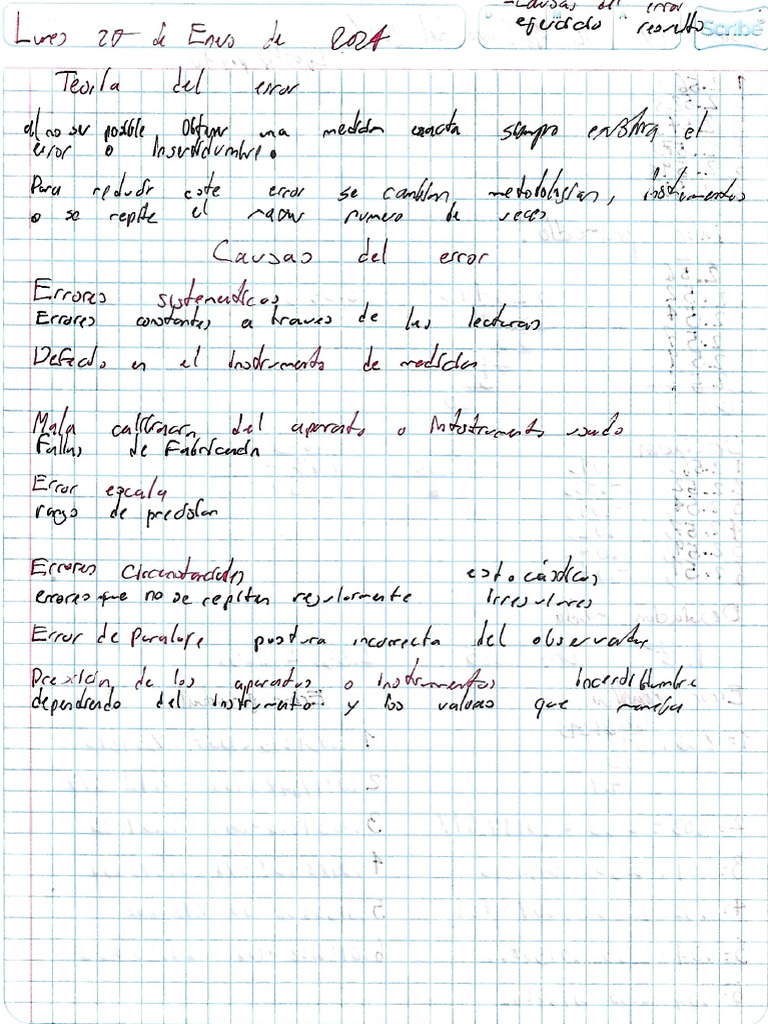 -Causas del error
ejercicio resuelto
Scribe
Lunes 20 de Enero de 2021
Teoria del error
al no ser posible obtener una medida exacta siempre existira el
error o Inserdidumbre.
Para reducir este error se cambian metodologias, instrimentos
o se repite el mayor numero de veces
Causas del error
Errores sistematicos
Errores constantes a traves de las lecturas
Defecto en el instrumento de medicion
Mala calibracion del aparato o instrumento usado
Fallas de Fabricacion
Error escala
rango de precision
Errores Circunstanciales estocásticos
errores que no se repiten regularmente irregulares
Error de Paralaje postura incorrecta del observador
Presicion de los aparatos o instrumentos incerdidumbre
dependiendo del instrumento y los valores que maneja